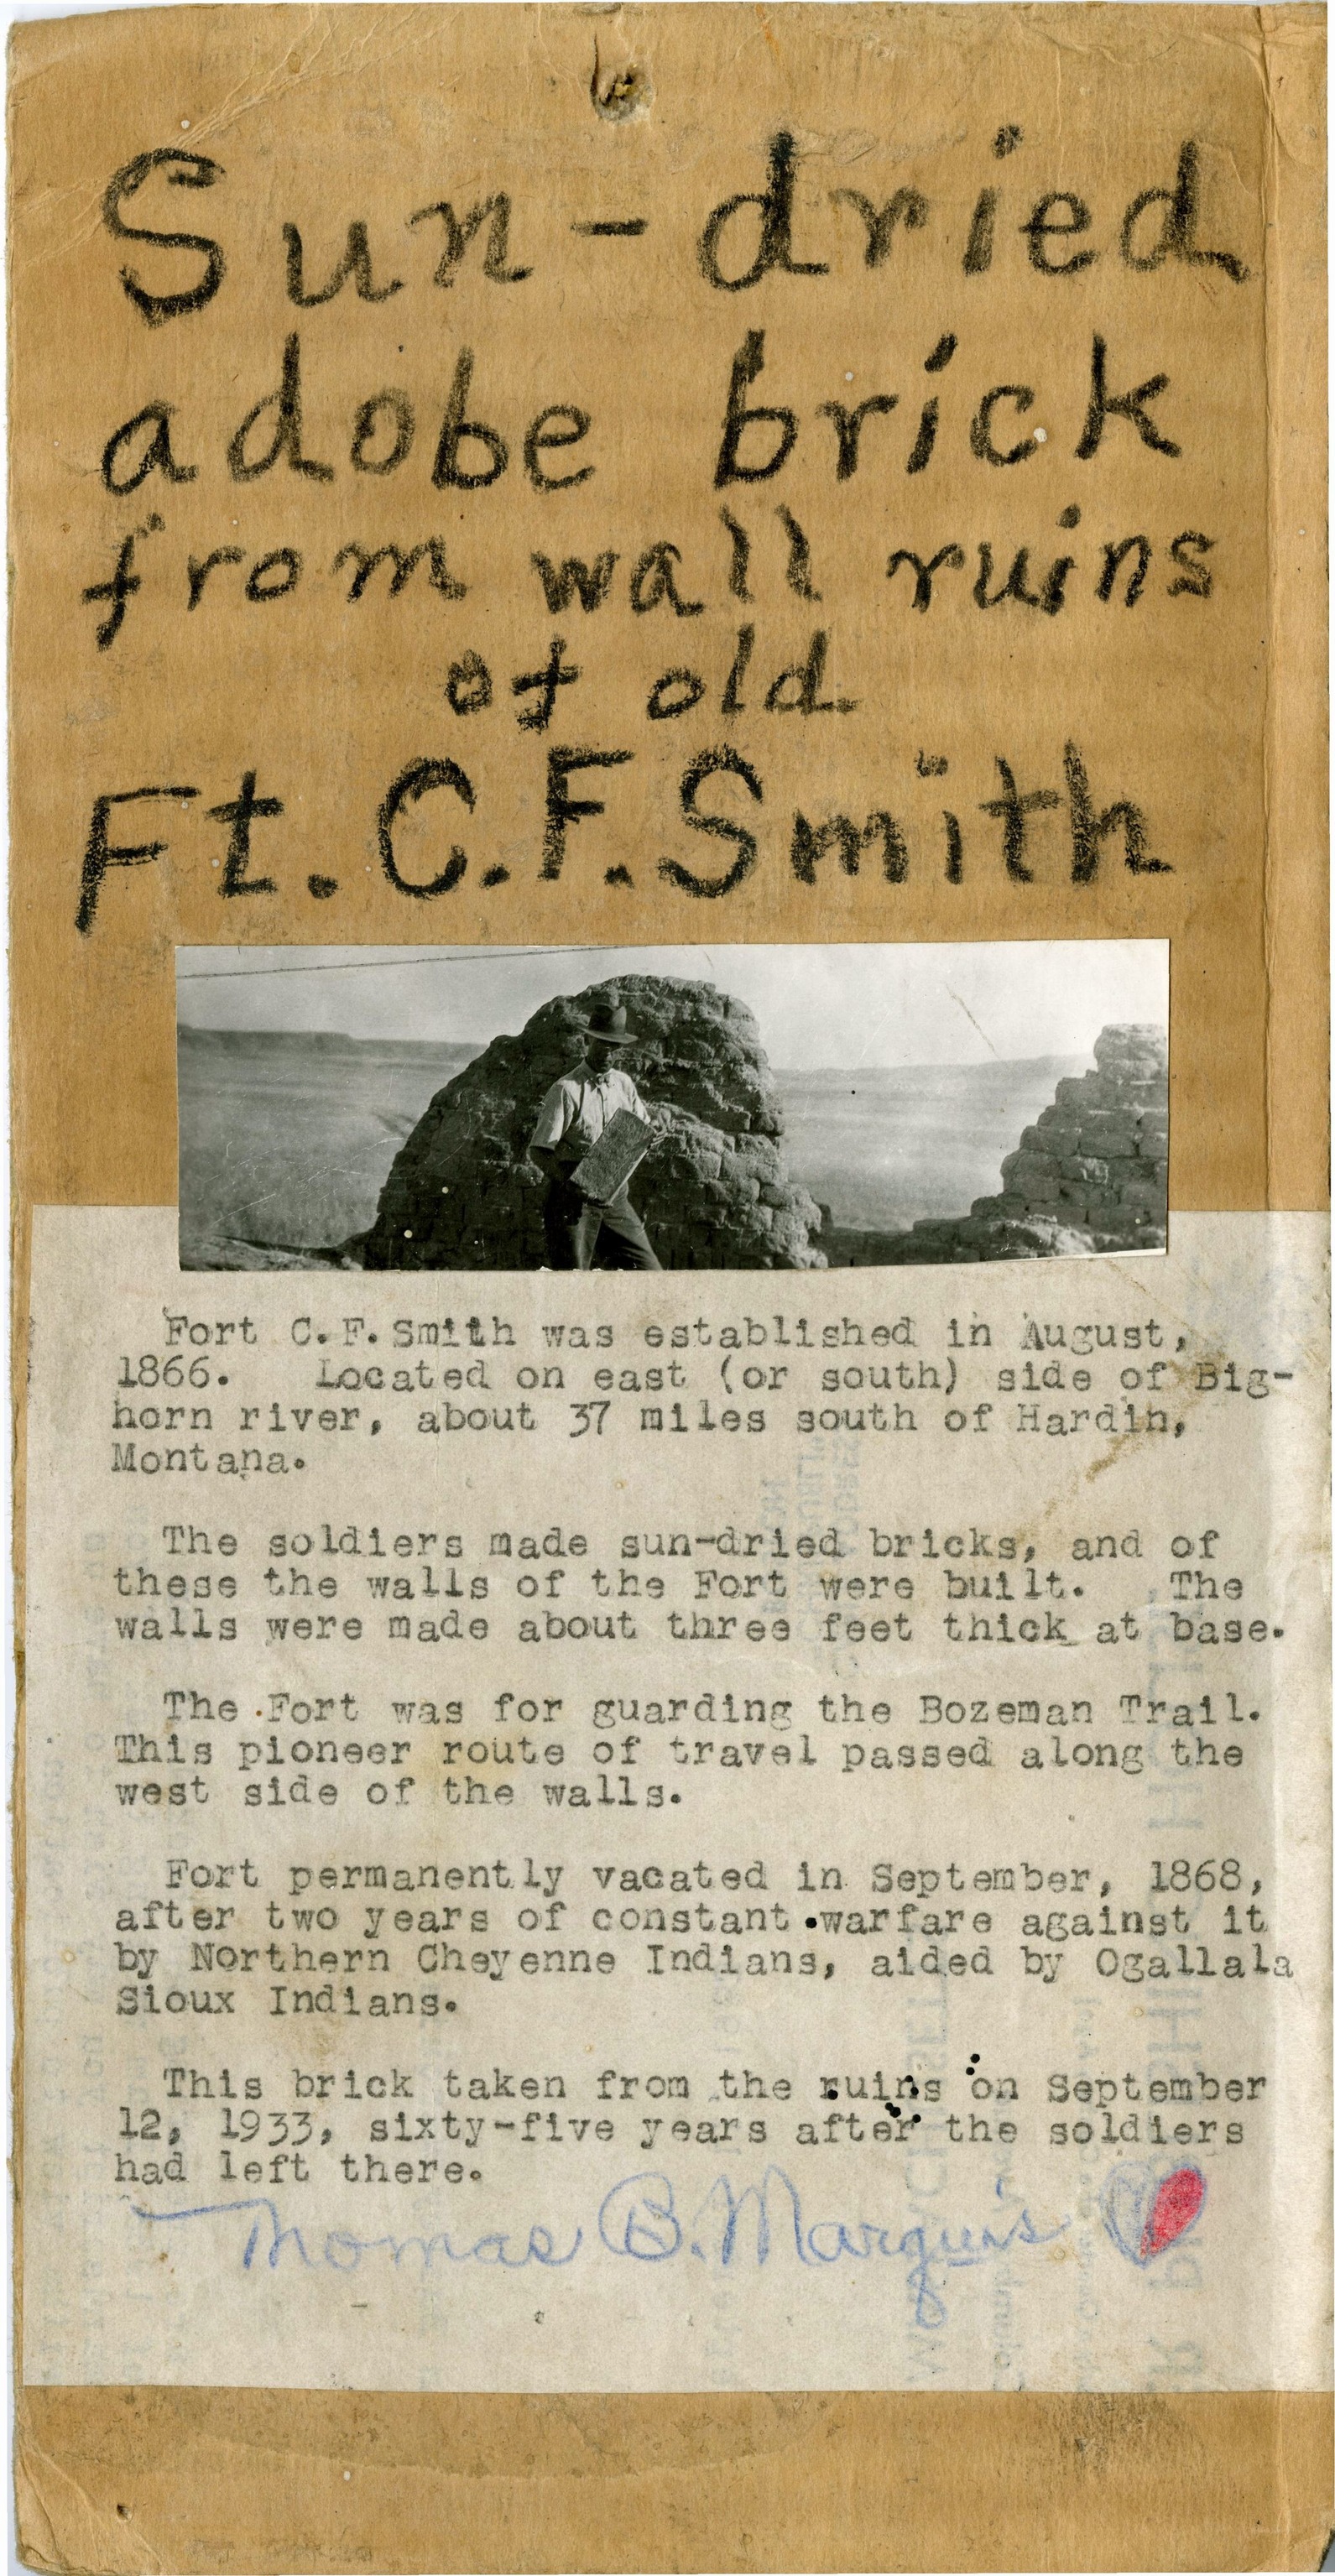 Sun-dried
adobe brick
from wall ruins
of old
Ft. C. F. Smith
Fort C. F. Smith was established in August,
1866. Located on east (or south) side of Big-
horn river, about 37 miles south of Hardin,
Montana.
The soldiers made sun-dried bricks, and of
these the walls of the Fort were built. The
walls were made about three feet thick at base.
The Fort was for guarding the Bozeman Trail.
This pioneer route of travel passed along the
west side of the walls.
Fort permanently vacated in September, 1868,
after two years of constant warfare against it
by Northern Cheyenne Indians, aided by Ogallala
Sioux Indians.
This brick taken from the ruins on September
12, 1933, sixty-five years after the soldiers
had left there.
Thomas B. Marquis